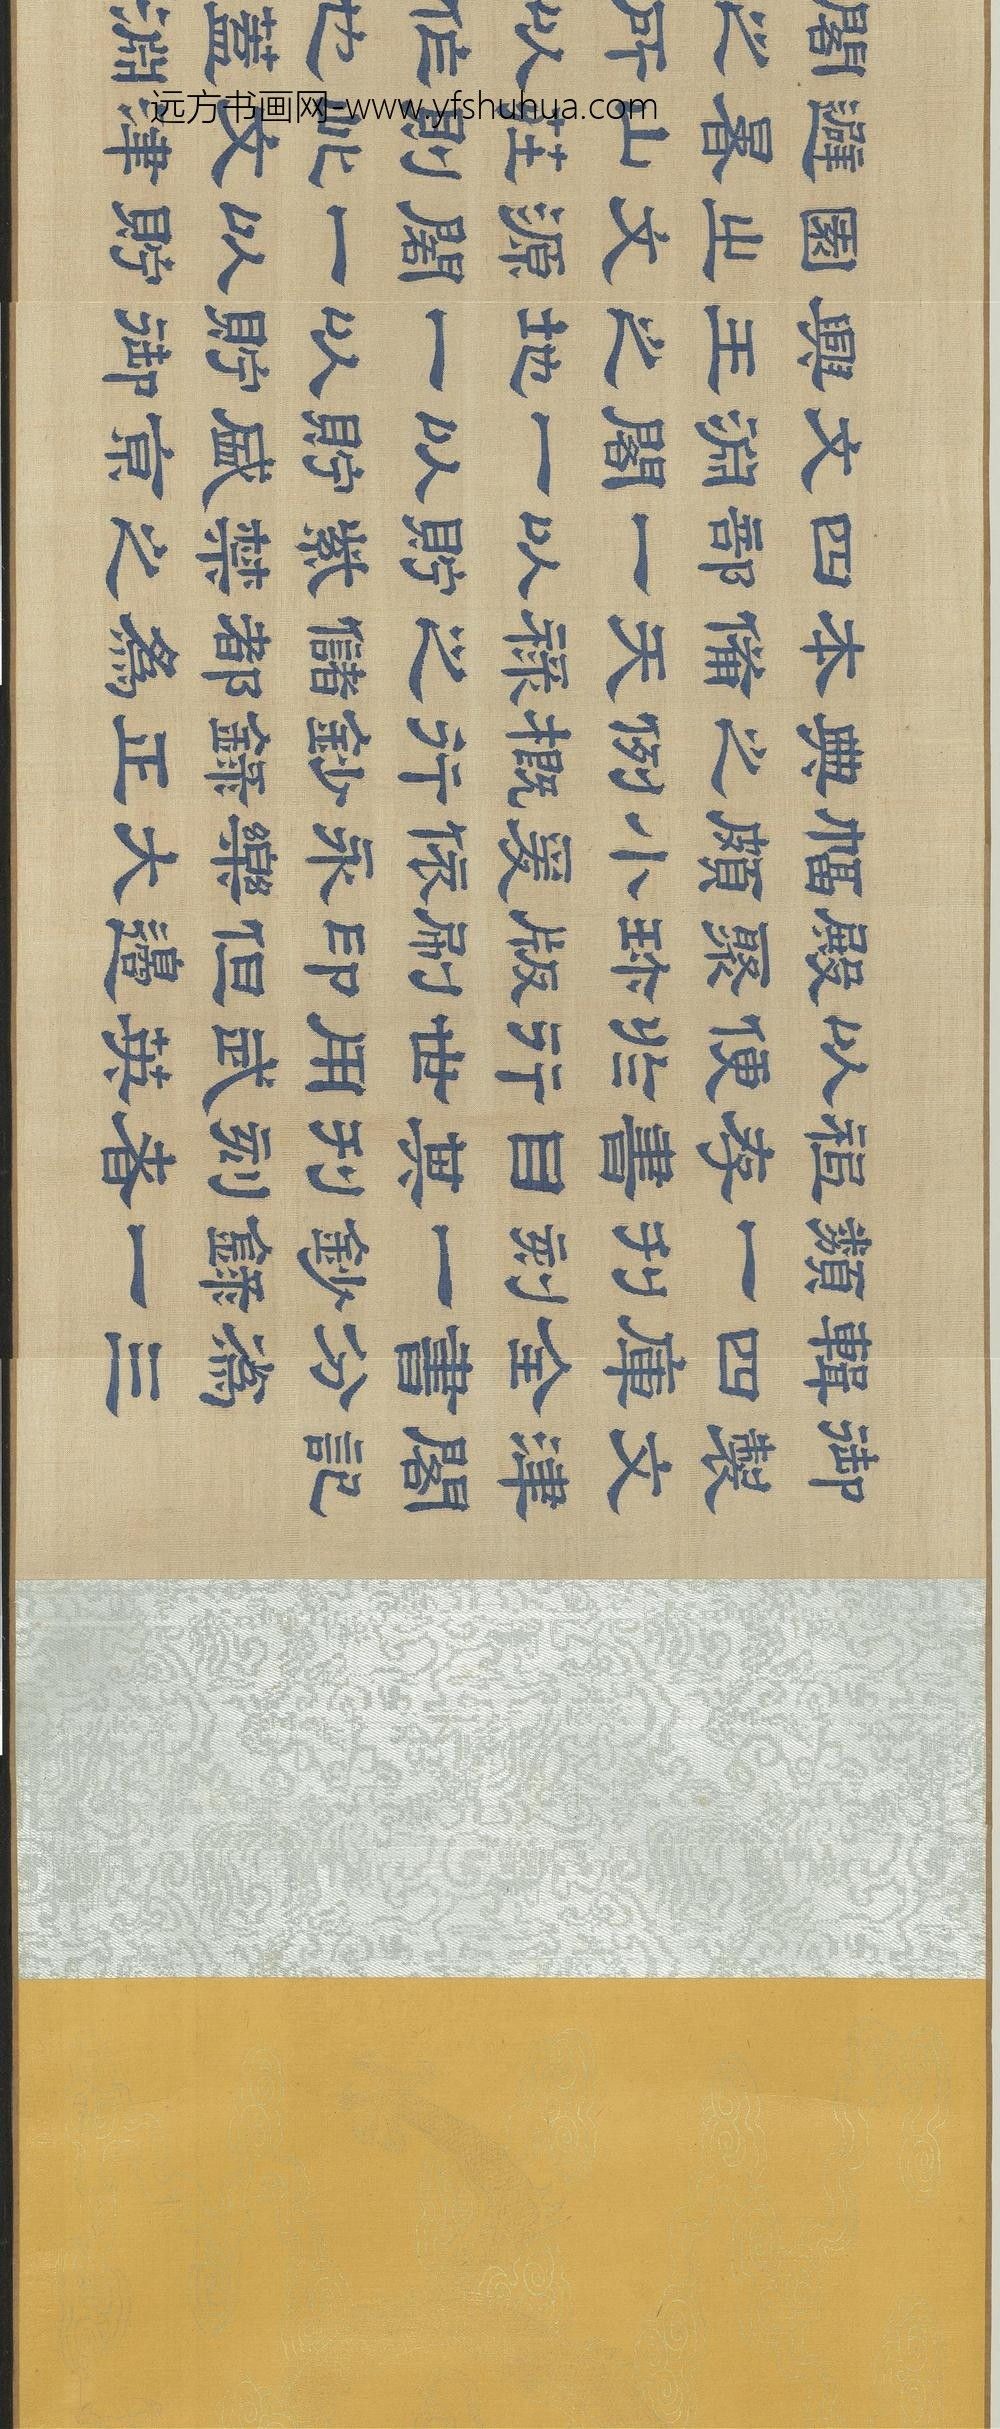 御製文津閣記
輯四庫全書分為三
類一刊刻一鈔錄一
祇存書目其刊刻者
以便於行世用武英
殿聚珍版刷印但邊
幅頗小爰依永樂大
典之例概行鈔錄正
本備天祿之儲都為
四部一以貯紫禁之
文淵閣一以貯盛京
興王之地一以貯御
園之文源閣一以貯
避暑山莊則此文津
閣之所以作也蓋淵
远方书画网-www.yfshuhua.com